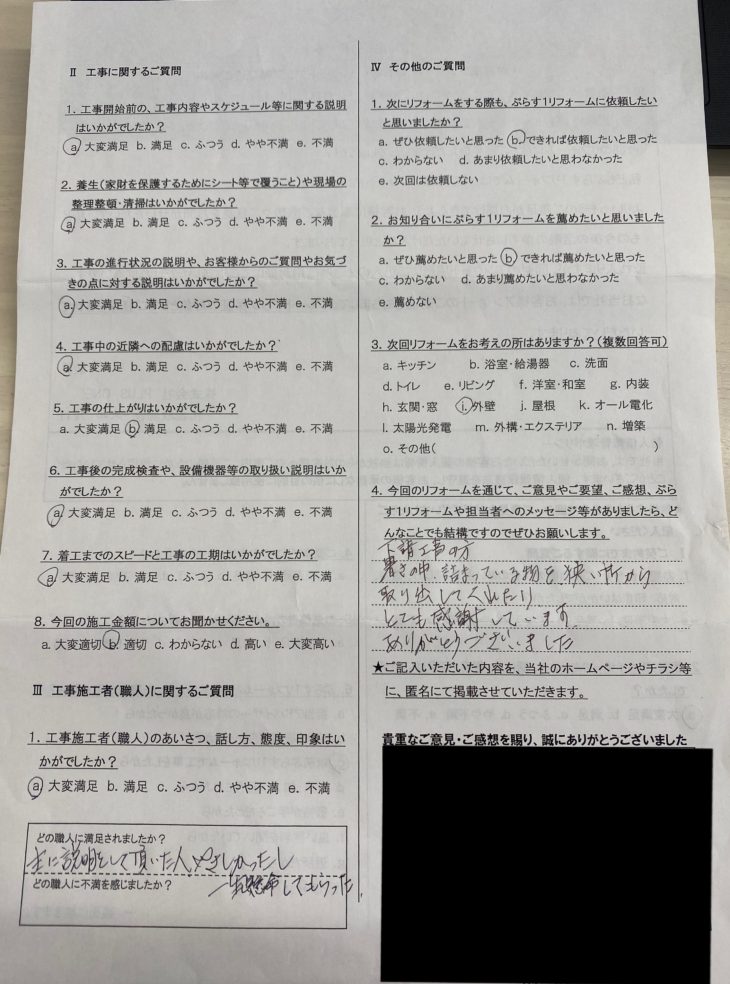 Ⅱ 工事に関するご質問
1. 工事開始前の、工事内容やスケジュール等に関する説明
はいかがでしたか？
a. 大変満足 b. 満足 c. ふつう d. やや不満 e. 不満
2. 養生(家財を保護するためにシート等で覆うこと)や現場の
整理整頓・清掃はいかがでしたか？
a. 大変満足 b. 満足 c. ふつう d. やや不満 e. 不満
3. 工事の進行状況の説明や、お客様からのご質問やお気づ
きの点に対する説明はいかがでしたか？
a. 大変満足 b. 満足 c. ふつう d. やや不満 e. 不満
4. 工事中の近隣への配慮はいかがでしたか？
a. 大変満足 b. 満足 c. ふつう d. やや不満 e. 不満
5. 工事の仕上がりはいかがでしたか？
a. 大変満足 b. 満足 c. ふつう d. やや不満 e. 不満
6. 工事後の完成検査や、設備機器等の取り扱い説明はいか
がでしたか？
a. 大変満足 b. 満足 c. ふつう d. やや不満 e. 不満
7. 着工までのスピードと工事の工期はいかがでしたか？
a. 大変満足 b. 満足 c. ふつう d. やや不満 e. 不満
8. 今回の施工金額についてお聞かせください。
a. 大変適切 b. 適切 c. わからない d. 高い e. 大変高い
Ⅲ 工事施工者(職人)に関するご質問
1. 工事施工者(職人)のあいさつ、話し方、態度、印象はい
かがでしたか？
a. 大変満足 b. 満足 c. ふつう d. やや不満 e. 不満
どの職人に満足されましたか？
主に説明をして頂いた人、やさしかったし
どの職人に不満を感じましたか？
一生懸命してもらった。
Ⅳ その他のご質問
1. 次にリフォームをする際も、ぷらす1リフォームに依頼したい
と思いましたか？
a. ぜひ依頼したいと思った b. できれば依頼したいと思った
c. わからない d. あまり依頼したいと思わなかった
e. 次回は依頼しない
2. お知り合いにぷらす1リフォームを薦めたいと思いました
か？
a. ぜひ薦めたいと思った b. できれば薦めたいと思った
c. わからない d. あまり薦めたいと思わなかった
e. 薦めない
3. 次回リフォームをお考えの所はありますか？(複数回答可)
a. キッチン b. 浴室・給湯器 c. 洗面
d. トイレ e. リビング f. 洋室・和室 g. 内装
h. 玄関・窓 i. 外壁 j. 屋根 k. オール電化
l. 太陽光発電 m. 外構・エクステリア n. 増築
o. その他( )
4. 今回のリフォームを通じて、ご意見やご要望、ご感想、ぷら
す1リフォームや担当者へのメッセージ等がありましたら、ど
んなことでも結構ですのでぜひお願いします。
下請工事の方
暑さの中、詰まっている物を狭い所から
取り出してくれたり
とても感謝しています。
ありがとうございました
★ご記入いただいた内容を、当社のホームページやチラシ等
に、匿名にて掲載させていただきます。
貴重なご意見・ご感想を賜り、誠にありがとうございました